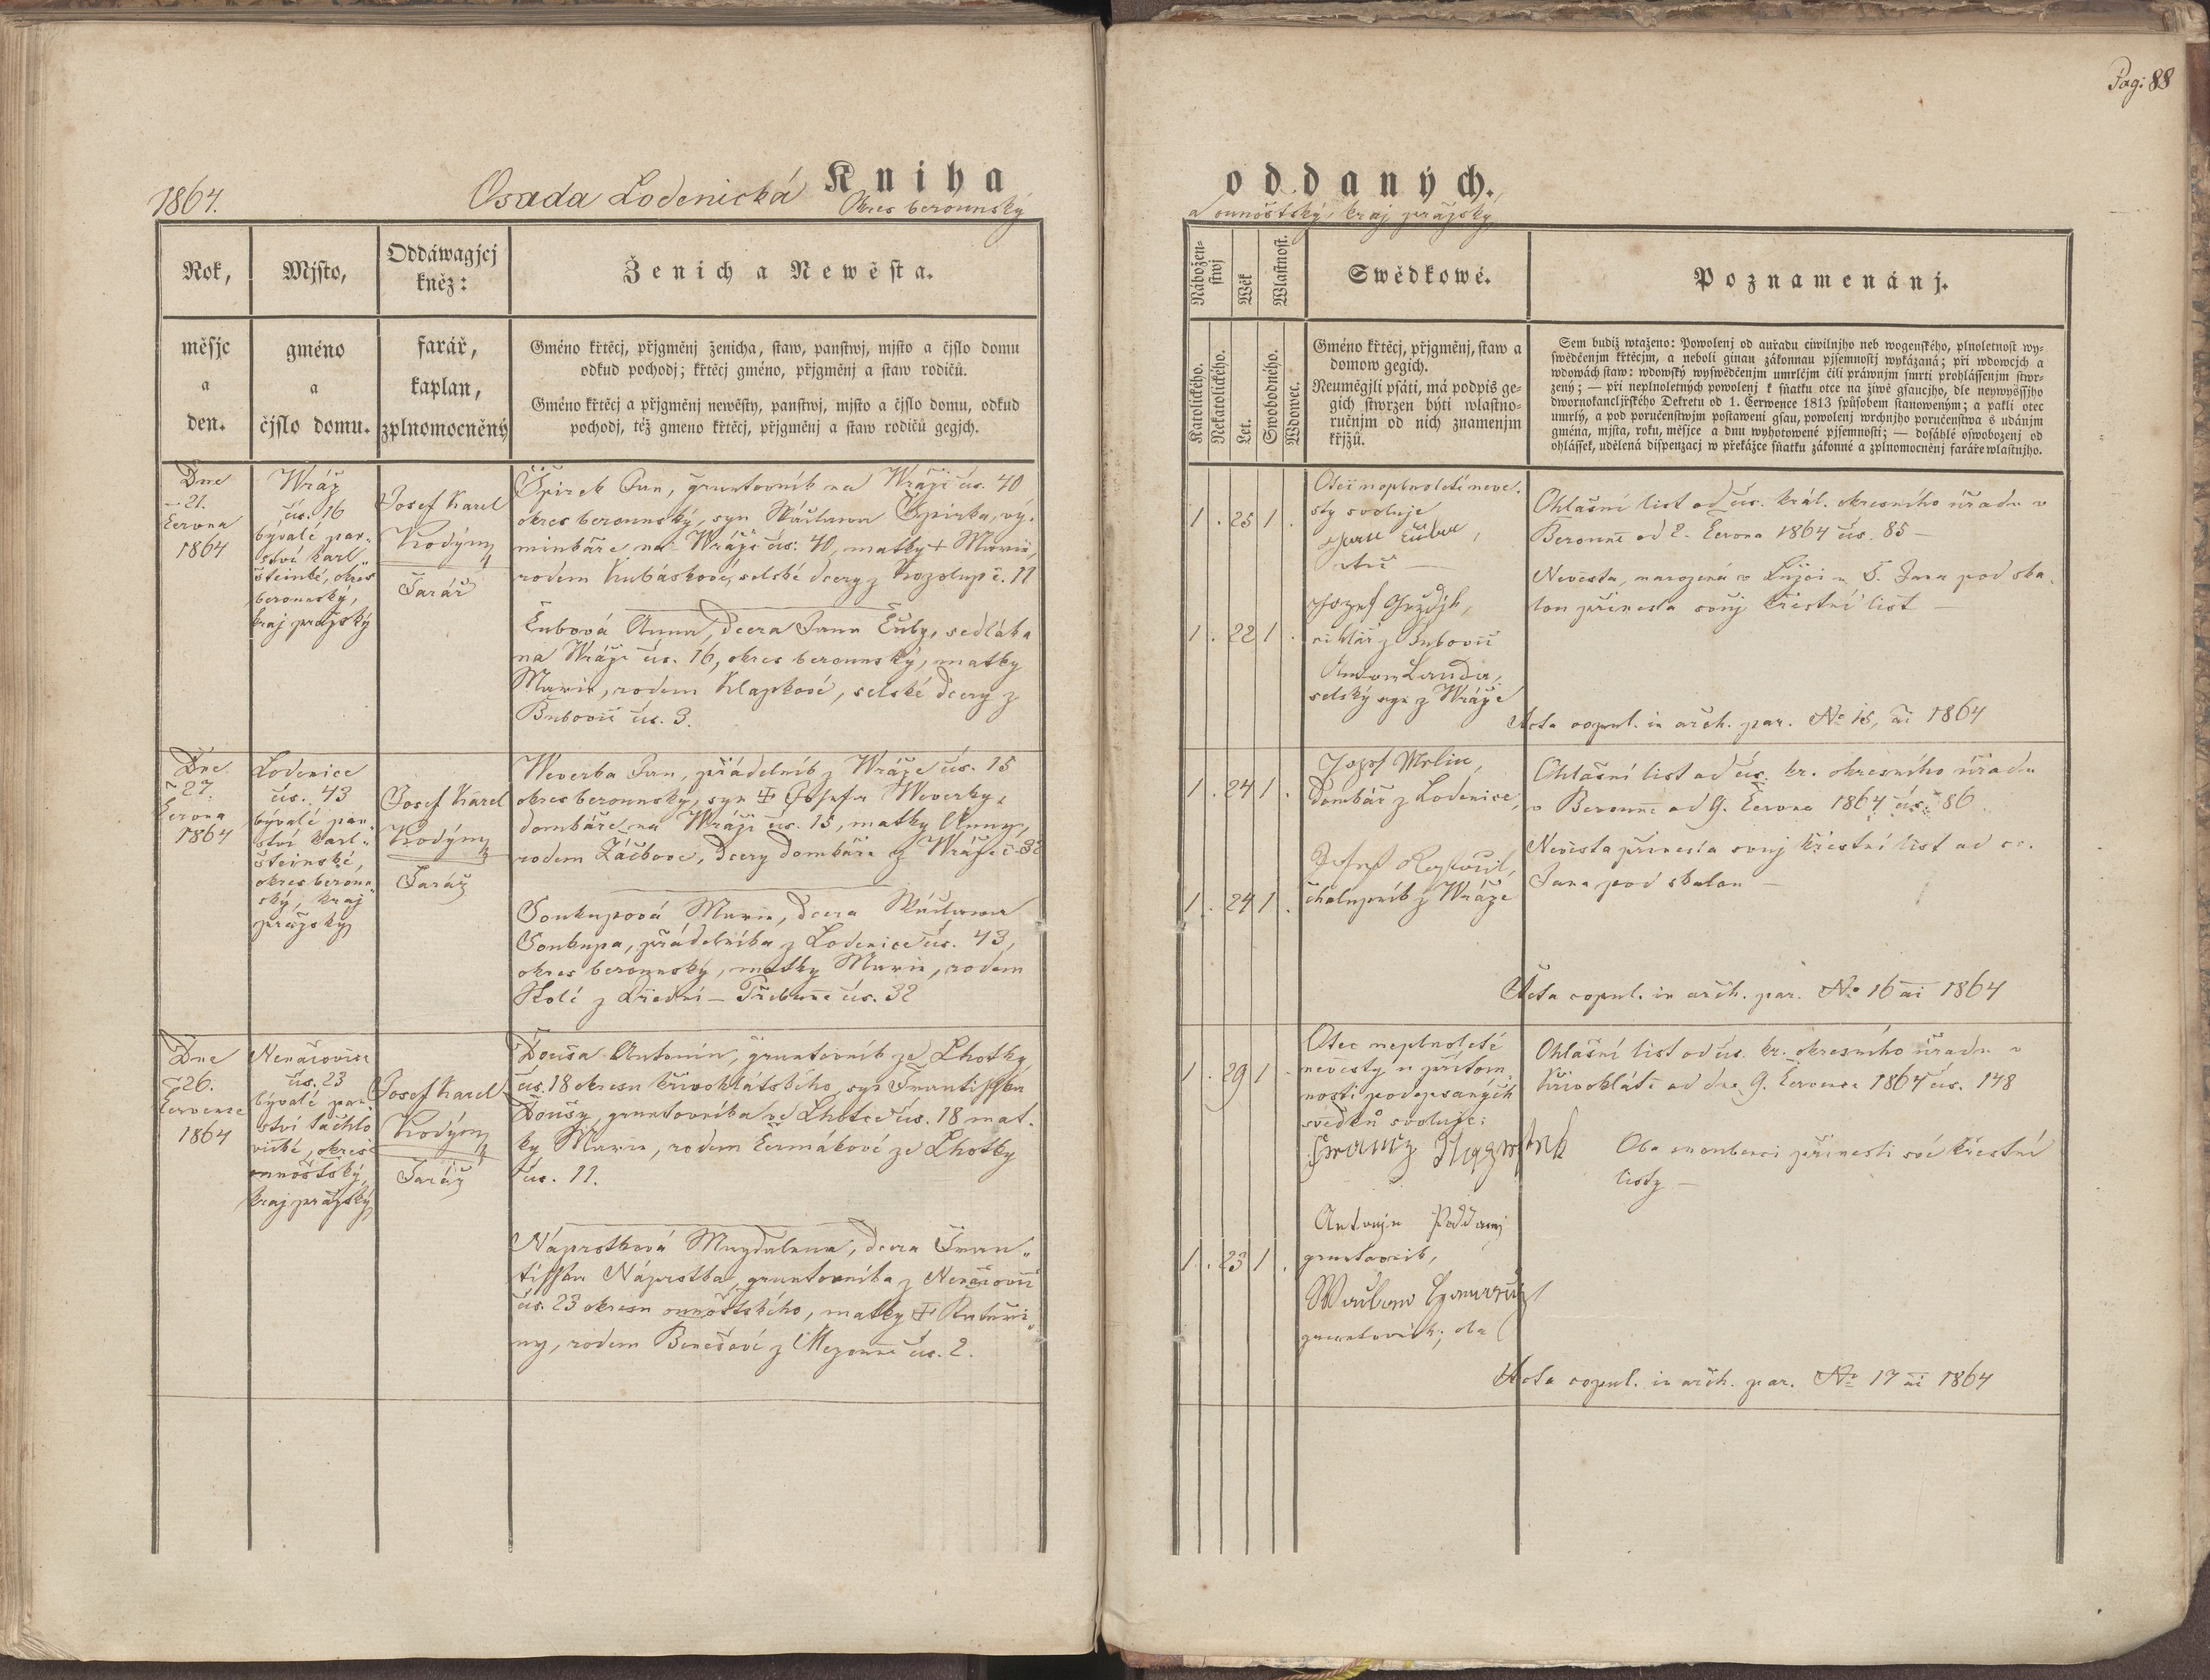 Pag: 88
1864.
Osada Lodenická
Kniha
Okres berounský
oddaných.
a ounošťský, kraj pražský
Rok,
měsjc
a
den.
Mjsto,
gméno
a
čjslo domu.
Oddáwagjcj
kněz:
farář,
kaplan,
zplnomocněný
Ženich a Newěsta.
Gméno křtěcj, přjgměnj ženicha, staw, panstwj, mjsto a čjslo domu
odkud pochodj; křtěcj gméno, přjgměnj a staw rodičů.
Gméno křtěcj a přjgměnj newěsty, panstwj, mjsto a čjslo domu, odkud
pochodj, též gmeno křtěcj, přjgměnj a staw rodičů gegjch.
Nábožen-
stwj
Katolického.
Nekatolického.
Wěk
Let.
Wlastnost.
Swobodného.
Wdowec.
Swědkowé.
Gméno křtěcj, přjgměnj, staw a
domow gegich.
Neumějgjli psáti, má podpis ge-
gich stwrzen býti wlastno-
ručnjm od nich znamenjm
křjžů.
Poznamenánj.
Sem budiž wtaženo: Powolenj od auřadu ciwilnjho neb wogenského, plnoletnost wy-
swědčenjm křtěcjm, a neboli ginau zákonnau pjsemnostj wykázaná; při wdowcjch a
wdowách staw: wdowský wyswědčenjm umrlčjm čili práwnjm smrti prohlássenjm stwr-
zený; — při neplnoletných powolenj k sňatku otce na žiwě gsaucjho, dle neywyššjho
dwornokancljřského Dekretu od 1. Čerwence 1813 spůsobem stanoweným; a pakli otec
umrlý, a pod poručenstwjm postaweni gsau, powolenj wrchnjho poručenstwa s udánjm
gména, mjsta, roku, měsjce a dnu wyhotowené pjsemnosti; — dosáhlé oswobozenj od
ohlássek, udělená dispenzacj w překážce sňatku zákonné a zplnomocněnj faráře wlastnjho.
Dne
21.
Června
1864
Wráž
čís. 16
bývalé pan-
ství Karl-
šteinské, okres
berounský,
kraj pražský
Josef Karel
Kodým
Farář
Špirek Jan, gruntovník na Wráži čís. 40
okres berounský, syn Wáclawa Špirka, vý-
minkáře na Wráži čís. 40, matky + Marie,
rodem Kubáskové, selské dcery z Kozolup č. 11
Čubová Anna, dcera Jana Čuby, sedláka
na Wráži čís. 16, okres berounský, matky
Marie, rodem Klapkové, selské dcery z
Bubovic čís. 3.
1 . 25 1 .
1 . 22 1 .
Otec neplnoleté neve-
sty svoluje
Jan Čuba,
otec —
Jozef
z Bubovic
Anton Landa,
selský syn z Wráže
Ohlašní list od čís. král. okresního úřadu v
Berouně od 2. Června 1864 čís. 85 —
Nevěsta, narozená v u S. Jana pod ska-
lou přinesla svůj křestní list —
Acta copul. in arch. par. No 15, ai 1864
Dne
27.
Června
1864
Lodenice
čís. 43
bývalé pan-
ství Karl-
šteinské,
okres beroun-
ský, kraj
pražský
Josef Karel
Kodým
Farář
Weverka Jan, přádelník z Wráže čís. 15
okres berounský, syn + Josefa Weverky,
domkáře na Wráži čís. 15, matky Anny,
rodem Žáčkové, dcery domkáře z Wráže č. 32
Soukupová Marie, dcera Wáclawa
Soukupa, přádelníka z Lodenice čís. 43,
okres berounský, matky Marie, rodem
Holé z Přední — Třebaně čís. 32
1 . 24 1 .
1 . 24 1 .
Jozef
Domkář z Lodenice,
Josef
chalupník z Wráže
Ohlašní list od čís. kr. okresního úřadu
v Berouně od 9. Června 1864 čís. 86
Nevěsta přinesla svůj křestní list od sv.
Jana pod skalou —
Acta copul. in arch. par. No 16 ai 1864
Dne
26.
Července
1864
Nenačovice
čís. 23
bývalé pan-
ství Tachlo-
vické, okres
ounošťský,
kraj pražský
Josef Karel
Kodým
Farář
Douša Antonín, gruntovník ze Lhotky
čís. 18 okresu křivoklátského, syn Frantisska
Doušy, gruntovníka ze Lhotce čís. 18 mat-
ky Marie, rodem Čermákové ze Lhotky
čís. 11.
Náprstková Magdalena, dcera Fran-
tisska Náprstka, gruntovníka z Nenačovic
čís. 23 okresu ounošťského, matky + Kateři-
ny, rodem Benešové z Mezouně čís. 2.
1 . 29 1 .
1 . 23 1 .
Otec neplnoleté
nevěsty u přítom-
nosti podepsaných
svědků svoluje:
Franz
Antonjn Poddanj
gruntovník,
Waclaw
gruntovník; oba
Ohlašní list od čís. kr. okresního úřadu v
Křivoklátě od dne 9. Července 1864 čís. 148
Oba snoubenci přinesli své křestní
listy —
Acta copul. in arch. par. No 17 ai 1864